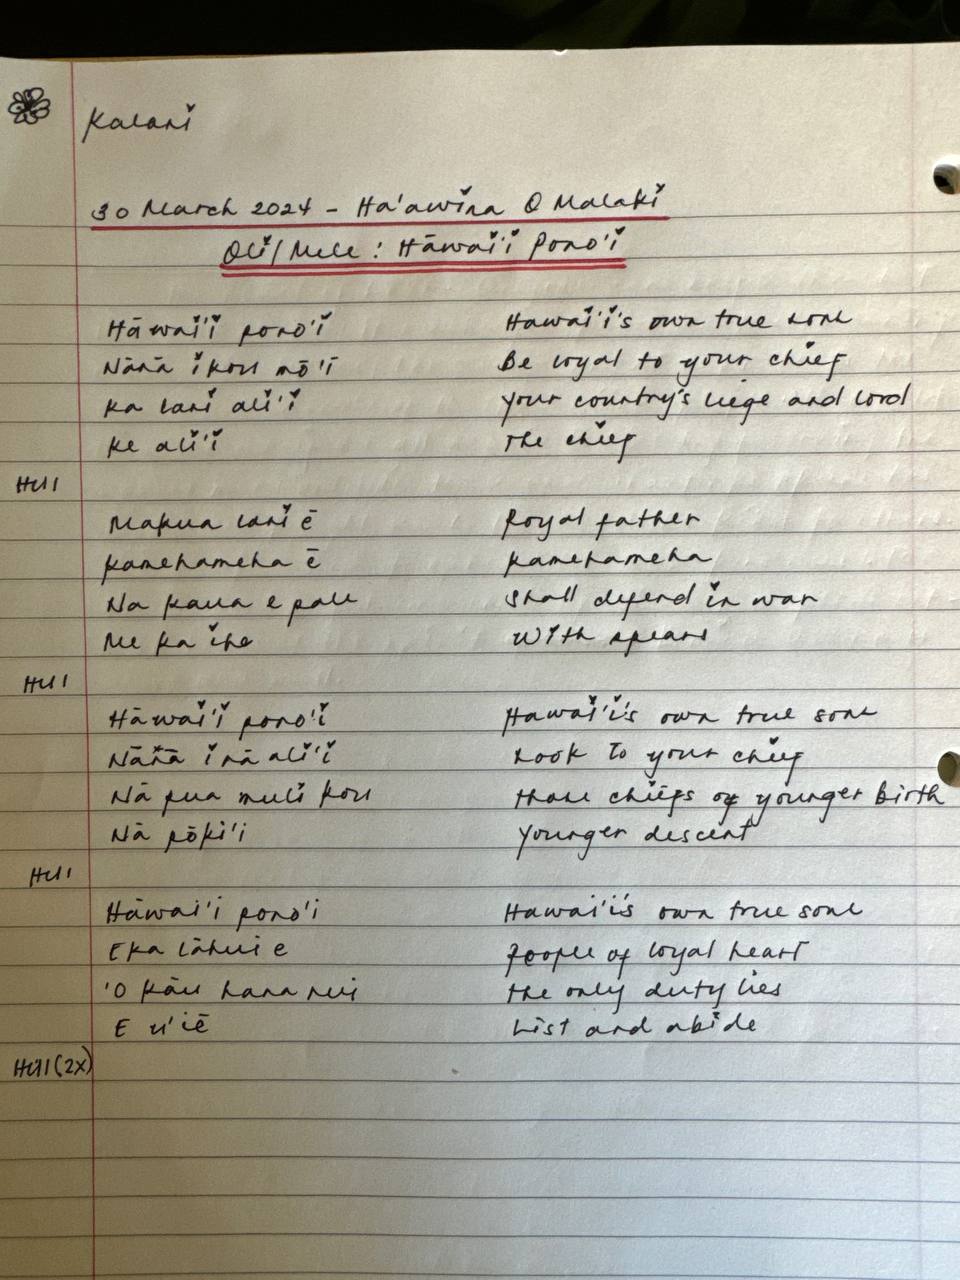 Kalani
30 March 2024 - Ha'awina O Malaki
Oli/Mele : Hāwai'i Pono'i
Hāwai'i pono'i Hawai'i's own true sons
Nānā i kou mō'ī Be loyal to your chief
Ka lani ali'i Your country's liege and lord
Ke ali'i The chief
HUI
Makua lani ē Royal father
Kamehameha ē Kamehameha
Na kaua e pale Shall defend in war
Me ka ihe With spears
HUI
Hāwai'i pono'i Hawai'i's own true sons
Nānā i nā ali'i Look to your chief
Nā pua muli kou Those chiefs of younger birth
Nā pōki'i Younger descent
HUI
Hāwai'i pono'i Hawai'i's own true sons
E ka lāhui e People of loyal heart
'O kāu hana nui The only duty lies
E u'iē List and abide
HUI (2x)